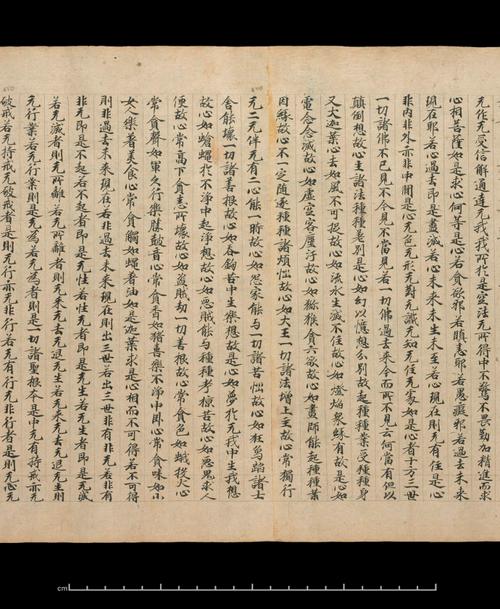 无作无受信解通達无我我所於是空法无所得中不驚不畏勤加精進而求
心相菩薩如是求心何等是心若貪欲耶若瞋恚耶若愚癡耶若過去未來
現在耶若心過去即是盡滅若心未來未生未至若心現在則无有住是心
非內非外亦非中間是心无色无形无對无識无知无住无家如是心者十方三世
一切諸佛不已見不今見不當見若一切佛過去來今而所不見云何當有但以
顛倒想故心生諸法種種差別是心如幻以憶想分別故起種種業受種種身
又大迦葉心去如風不可捉故心如流水生滅不住故心如燈焰眾緣有故是心如
電念念滅故心如虛空客塵汙故心如獼猴貪六欲故心如畫師能起種種業
因緣故心不一定隨逐種種諸煩惱故心如大王一切諸法增上主故心常獨行
无二无伴无有二心能一時故心如怨家能與一切諸苦惱故心如狂象蹈諸土
舍能壞一切諸善根故心如吞鉤苦中生樂想故是心如夢於无我中生我想
故心如蒼蠅於不淨中起淨想故心如惡賊能與種種考掠苦故心如惡鬼求人
便故心常高下貪恚所壞故心如盜賊劫一切善根故心常貪色如蛾投火心
常貪聲如軍久行樂勝鼓音心常貪香如猪喜樂不淨中臥心常貪味如小
女人樂著美食心常貪觸如蠅著油如是迦葉求是心相而不可得若不可得
則非過去未來現在若非過去未來現在則出三世若出三世非有非无若非有
非无即是不起若不起者即是无性若无性者即是无生若无生者即是无滅
若无滅者則无所離若无所離者則无來无去无退无生若无來无去无退无生則
无行業若无行業則是无為若无為者則是一切諸聖根本是中无有持戒亦无
破戒若无持戒无破戒者是則无行亦无非行若无有行无非行者是則无心无
cm